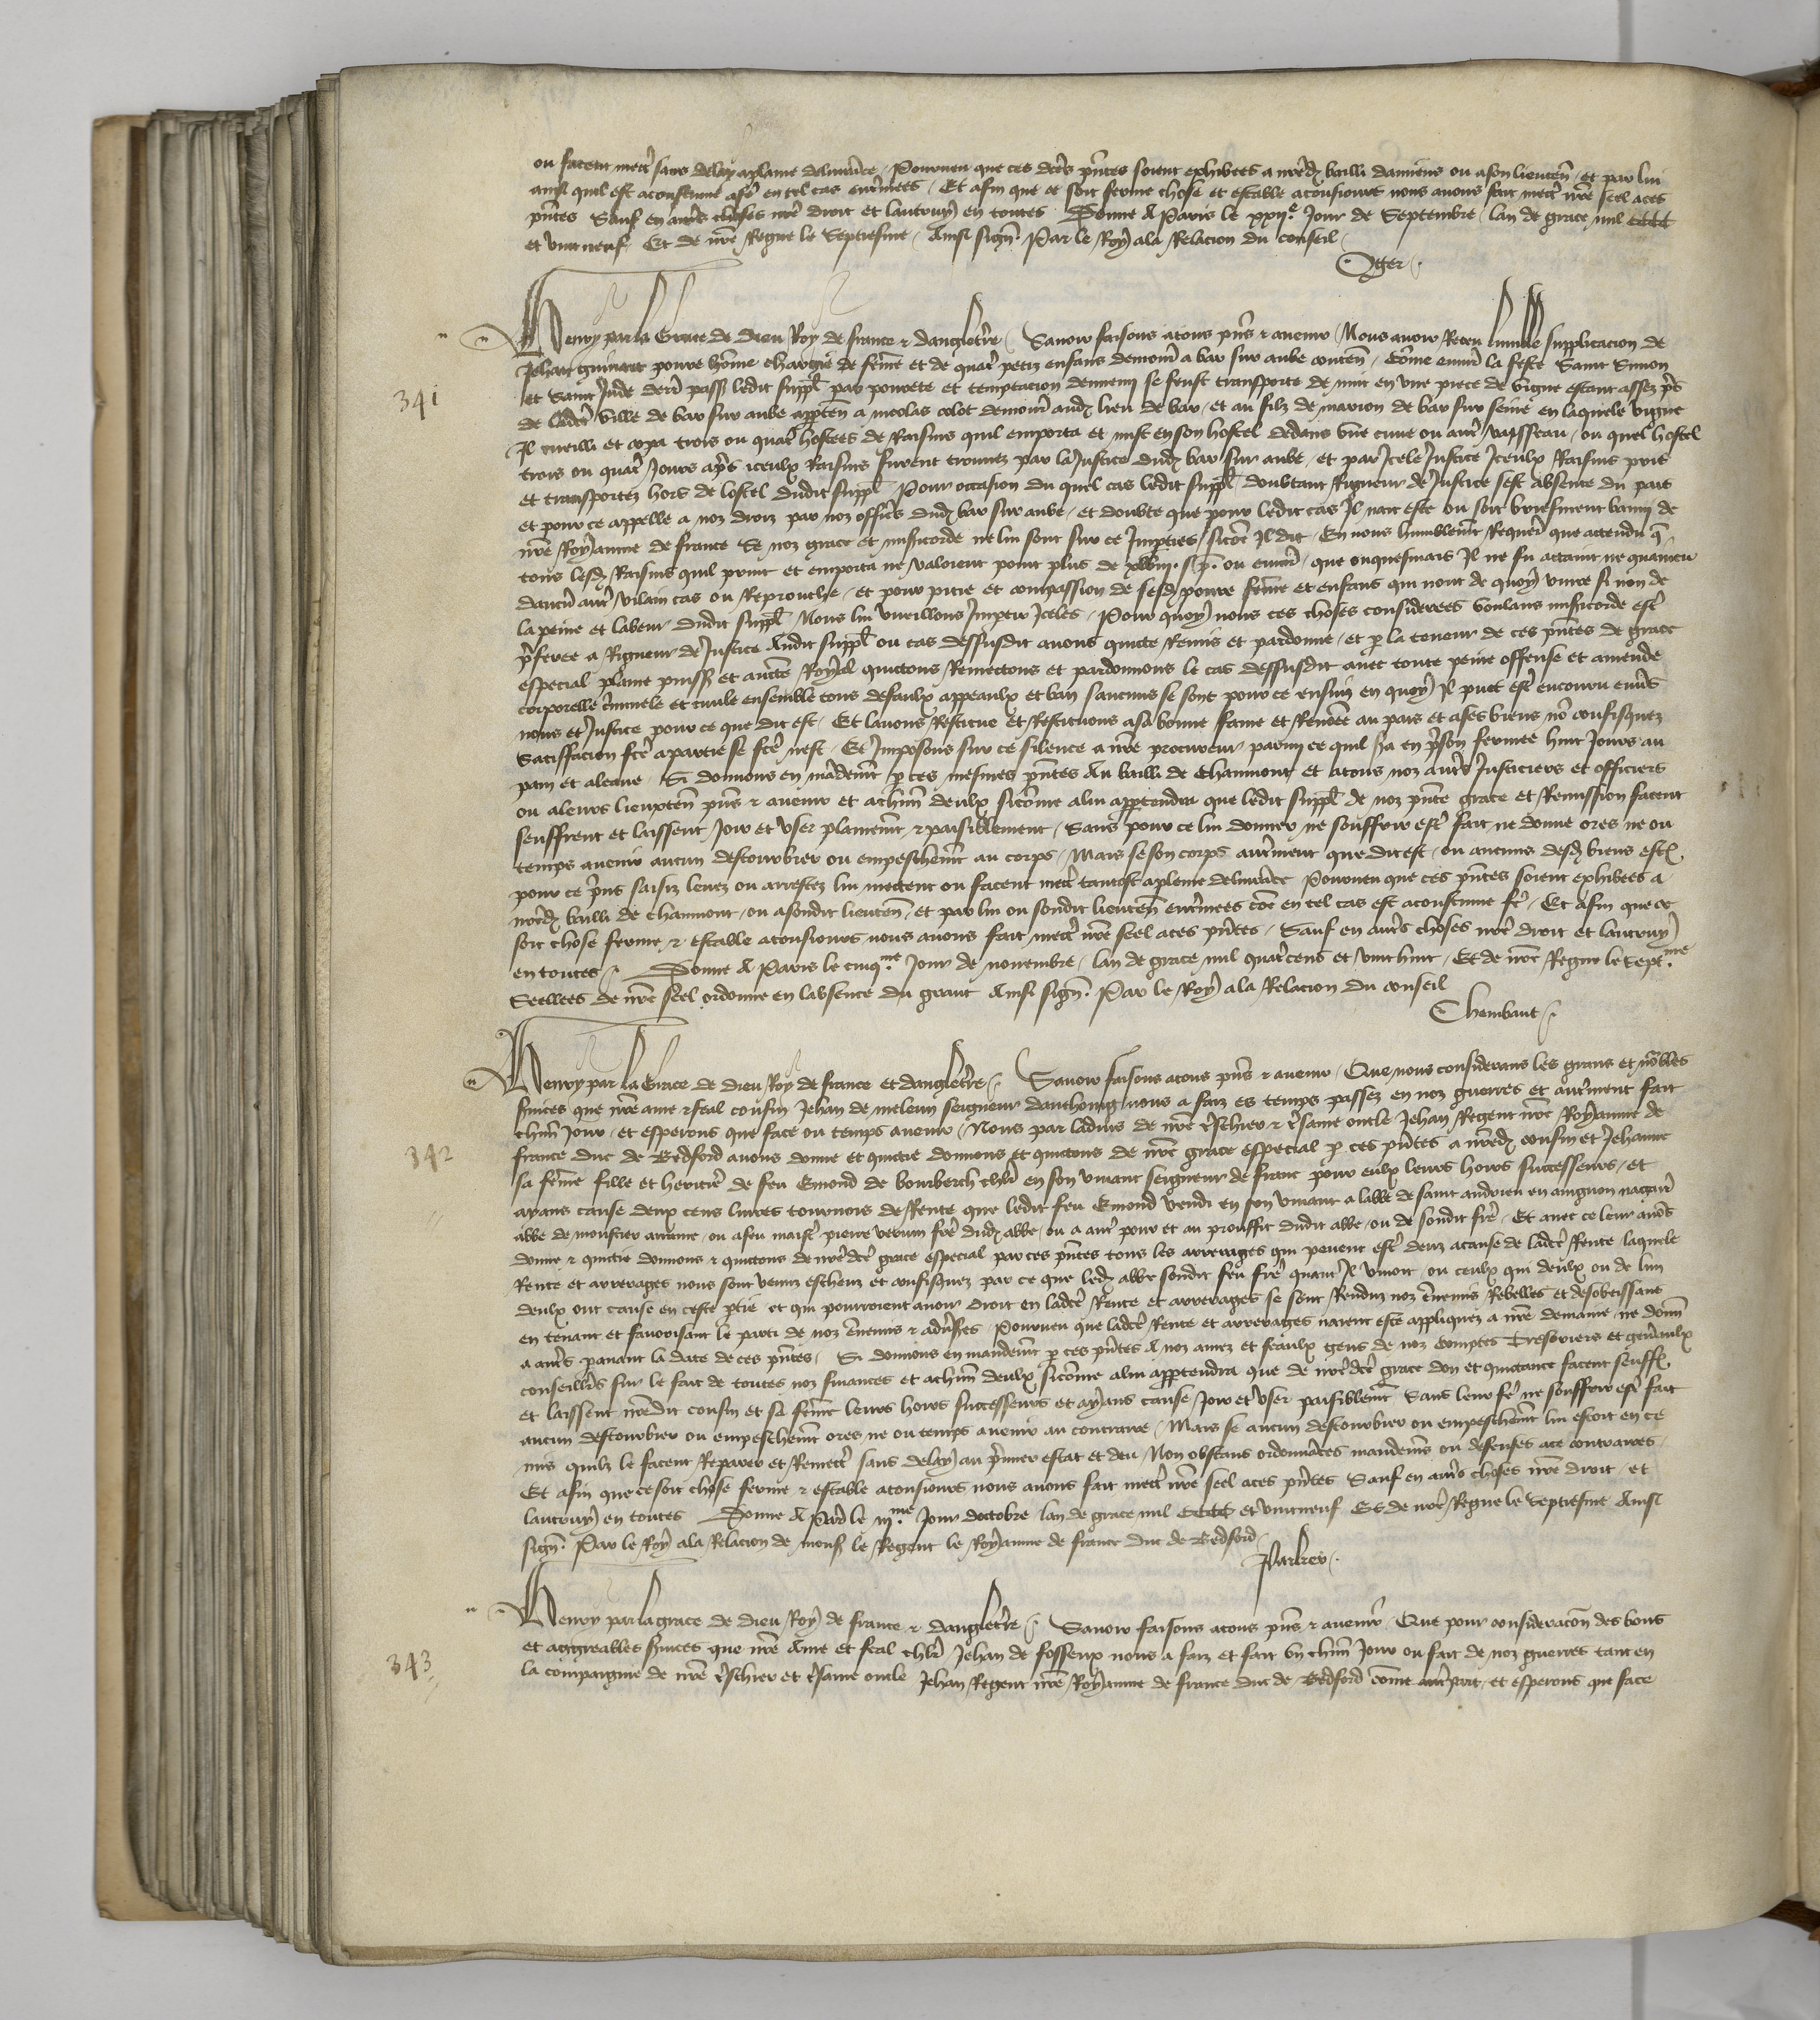 ou facent mectre sans delay a plaine delivrance / Pourveu que ces dctes pñtes soient exhibees a nredit bailli damiens ou a son lieuten̄ et par lui
ainsi quil est acoustumé a fe en tel cas enterinees / Et afin que ce soit ferme chose et estable a tousiours nous avons fait mectre nre seel a ces
pñtes Sauf en autres choses nre droit et lautruy en toutes Donne A Paris le xxii.e Jour de Septembre lan de grace mil cccc
et vint neuf Et de nre Regne le Septiesme / Ainsi signe Par le Roy a la Relacion du conseil
Oger
Henry par la Grace de dieu Roy de france & dangleterre Savoir faisons a tous pñs & avenir Nous avoir Receu humble supplicacion de
341
Jehan guiniart povre homme chargie de femme et de quatre petiz enfans demour a bar sur aube conten̄ / Comme environ la feste Saint Simon
et Saint Jude derr passe ledit suppl par povrete et temptacion dennemy se feust transporte de nuit en une piece de vigne estant assez pres
de ladicte ville de bar sur aube apparten̄ a nicolas colot demour audit lieu de bar / et au filz de marion de bar sur seine en laquele vigne
Il cueilli et copa trois ou quatre hostees de Raisins quil emporta et mist en son hostel dedans une cuve ou autre vaisseau / ou quel hostel
trois ou quatre Jours apres iceulx Raisins furent trouvez par la Justice dudit bar sur aube / et par Icele Justice Iceulx Raisins pris
et transportez hors de lostel dudit suppl / Pour occasion du quel cas ledit suppl doubtant Rigueur de Justice sest absente du pais
et pour ce appelle a noz droiz par noz officiers dudit bar sur aube / et doubte que pour ledit cas Il nait este ou soit briefment banny de
nre Royaume de france Se noz grace et misericorde ne lui sont sur ce Imparties / sicōe Il dit / En nous humblement Requerant que attendu que
tous lesdiz Raisins quil print et emporta ne valoient point plus de xviii s p. ou environ / que onquesmais Il ne fu attaint ne convaincu
daucun autre vilain cas ou Reprouche / et pour pitie et compassion de sesdiz povre femme et enfans qui nont de quoy vivre si non de
la peine et labeur dudit suppl Nous lui vueillons Impartir Iceles / Pour quoy nous ces choses considerees voulans misericorde estre
preferee a Rigueur de Justice Audit suppl ou cas dessusdit avons quicte Remis et pardonne / et par la teneur de ces pñtes de grace
especial plaine puiss et auctorite Royal quictons Remectons et pardonnons le cas dessusdit avec toute peine offense et amende
corporelle criminele et civile ensemble tous defaulx appeaulx et ban saucuns se sont pour ce ensuiz en quoy Il puet estre encouru envers
nous et Justice pour ce que dit est / Et lavons Restitue et Restituons a sa bonne fame et Renōee au pais et a ses biens non confisquez
Satisfacion fcte a partie se fcte nest / Et Imposons sur ce silence a nre procureur / parmi ce quil sera en prison fermee huit Jours au
pain et a leaue / Si donnons en mandement par ces mesmes pñtes Au bailli de Chaumont et a tous noz autres Justiciers et officiers
ou a leurs lieuxten̄ pñs & avenir et a chun deulx sicōme a lui appartendra que ledit suppl de noz pñte grace et Remission facent
seuffrent et laissent Joir et user plainement & paisiblement / Sans pour ce lui donner ne souffrir estre fait ne donne ores ne ou
temps avenir aucun destourbier ou empeschement au corps / Mais se son corps autrement que dit est / ou aucuns desdiz biens est
pour ce prins saisiz levez ou arrestez lui mectent ou facent mectre tantost a pleine delivrance Pourveu que ces pñtes soient exhibees a
nredit bailli de Chaumont / ou a sondit lieuten̄ / et par lui ou sondit lieuten̄ enterinees cōe en tel cas est acoustume fe / Et afin que ce
soit chose ferme & estable a tousiours nous avons fait mectre nre seel a ces pñtes / Sauf en autres choses nre droit et lautruy
en toutes / Donne A Paris le cinq.me Jour de novembre / lan de grace mil quatre cens et vint huit / Et de nre Regne le Sept.me
Seellees de nre seel ordonne en labsence du grant Ainsi signe Par le Roy a la Relacion du conseil
Thembaut
Henry par la Grace de dieu Roy de france et dangleterre Savoir faisons a tous pñs & avenir / Que nous considerans les grans et notables
services que nre ame & feal cousin Jehan de meleun seigneur danthoing nous a faiz es temps passez en noz guerres et autrement fait
342
chun Jour / et esperons que face ou temps avenir / Nous par ladvis de nre treschier & tresame oncle Jehan Regent nre Royaume de
france duc de Bedford avons donne et quictie donnons et quictons de nre grace especial par ces pñtes a nredit cousin et Jehanne
sa femme fille et heritiere de feu Emond de bourberch chlr en son vivant seigneur de pour eulx leurs hoirs successeurs / et
ayans cause deux cens livres tournois de Rente que ledit feu Emond vendi en son vivant a labbe de saint andrieu en avignon nagaires
abbe de monstier / ou a feu maistre pierre frere dudit abbe / ou a autre pour et au prouffit dudit abbe / ou de sondit frere / Et avec ce leur avons
donne & quictie donnons & quictons de nredicte grace especial par ces pñtes tous les arrerages qui pevent estre deuz a cause de ladicte Rente laquele
Rente et arrerages nous sont venuz escheuz et confisquez par ce que ledit abbe sondit feu frere quant Il vivoit / ou ceulx qui deulx ou de lun
deulx ont cause en ceste partie et qui pourroient avoir droit en ladicte Rente et arrerages se sont Renduz noz ennemis Rebelles et desobeissans
en tenant et favorisant le parti de noz ennemis & adversaires / Pourveu que ladicte Rente et arrerages naient este appliquez a nre demaine / ne donnez
a autres paravant la date de ces pñtes / Si donnons en mandement par ces pñtes A noz amez et feaulx gens de noz comptes Tresoriers et generaulx
conseillers sur le fait de toutes noz finances et a chun deulx sicōme a lui appartendra que de nredicte grace don et quictance facent seuffrent
et laissent nredit cousin et sa femme leurs hoirs successeurs et ayans cause / Joir et user paisiblement Sans leur fe ne souffrir estre fait
aucun destourbier ou empeschement ores ne ou temps avenir au contraire / Mais se aucun destourbier ou empeschement lui estoit en ce
mis quilz le facent Reparer et Remectre sans delay au premier estat et deu / Non obstans ordonnances mandemens ou defenses a ce contraires
Et afin que ce soit chose ferme & estable a tousiours nous avons fait mectre nre seel a ces pñtes Sauf en autres choses nre droit / et
lautruy en toutes Donne A Paris le iii.me Jour doctobre lan de grace mil cccc et vint neuf Et de nre Regne le Septiesme Ainsi
signe Par le Roy a la Relacion de mons le Regent le Royaume de france duc de Bedford
Parker
Henry par la grace de dieu Roy de france & dangleterre Savoir faisons a tous pñs & avenir / Que pour consideracion des bons
et aggreables services que nre Ame et feal chlr Jehan de fosseux nous a faiz et fait un chun Jour ou fait de noz guerres tant en
343
la compaignie de nre treschier et tresame oncle Jehan Regent nre Royaume de france duc de Bedford cōme autrepart / et esperons que face